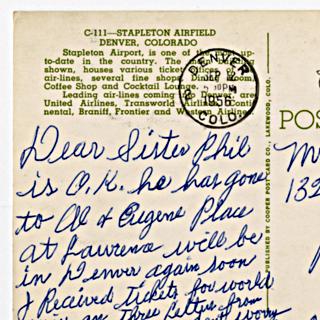 C-111—STAPLETON AIRFIELD
DENVER, COLORADO
Stapleton Airport, is one of the most up-
to-date in the country. The building
shown, houses various ticket offices of
air-lines, several fine shops, Dining Room,
Coffee Shop and Cocktail Lounge.
Leading air-lines coming to Denver, are
United Airlines, Transworld Airlines, Conti-
nental, Braniff, Frontier and Western Airlines.
DENVER
PM
1956
COLO.
PUBLISHED BY COOPER POST CARD CO., LAKEWOOD, COLO.
POS
132
Dear Sister Phil
is O.K. he has gone
to Al & Eugene Place
at Laurence will be
in Denver again soon
I Recived tickets for world
three letters from
worry